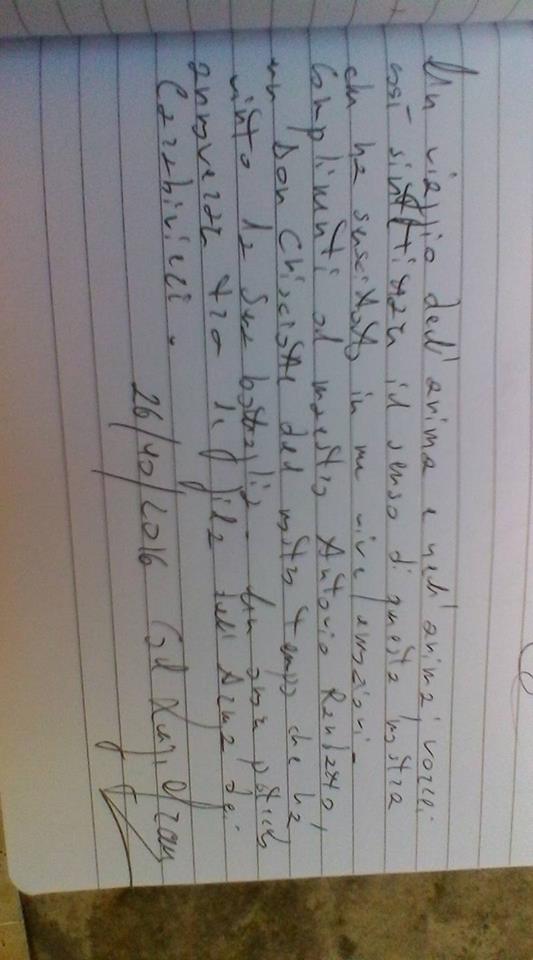 Un viaggio dell'anima e nell'anima; vorrei
così sintetizzare il senso di questa mostra
che ha suscitato in me vive emozioni.
Complimenti al maestro Antonio
un Don Chisciotte del nostro tempo che ha
vinto la sua battaglia. Un
annoverare tra le fila dell'Arma dei
Carabinieri.
26/10/2016